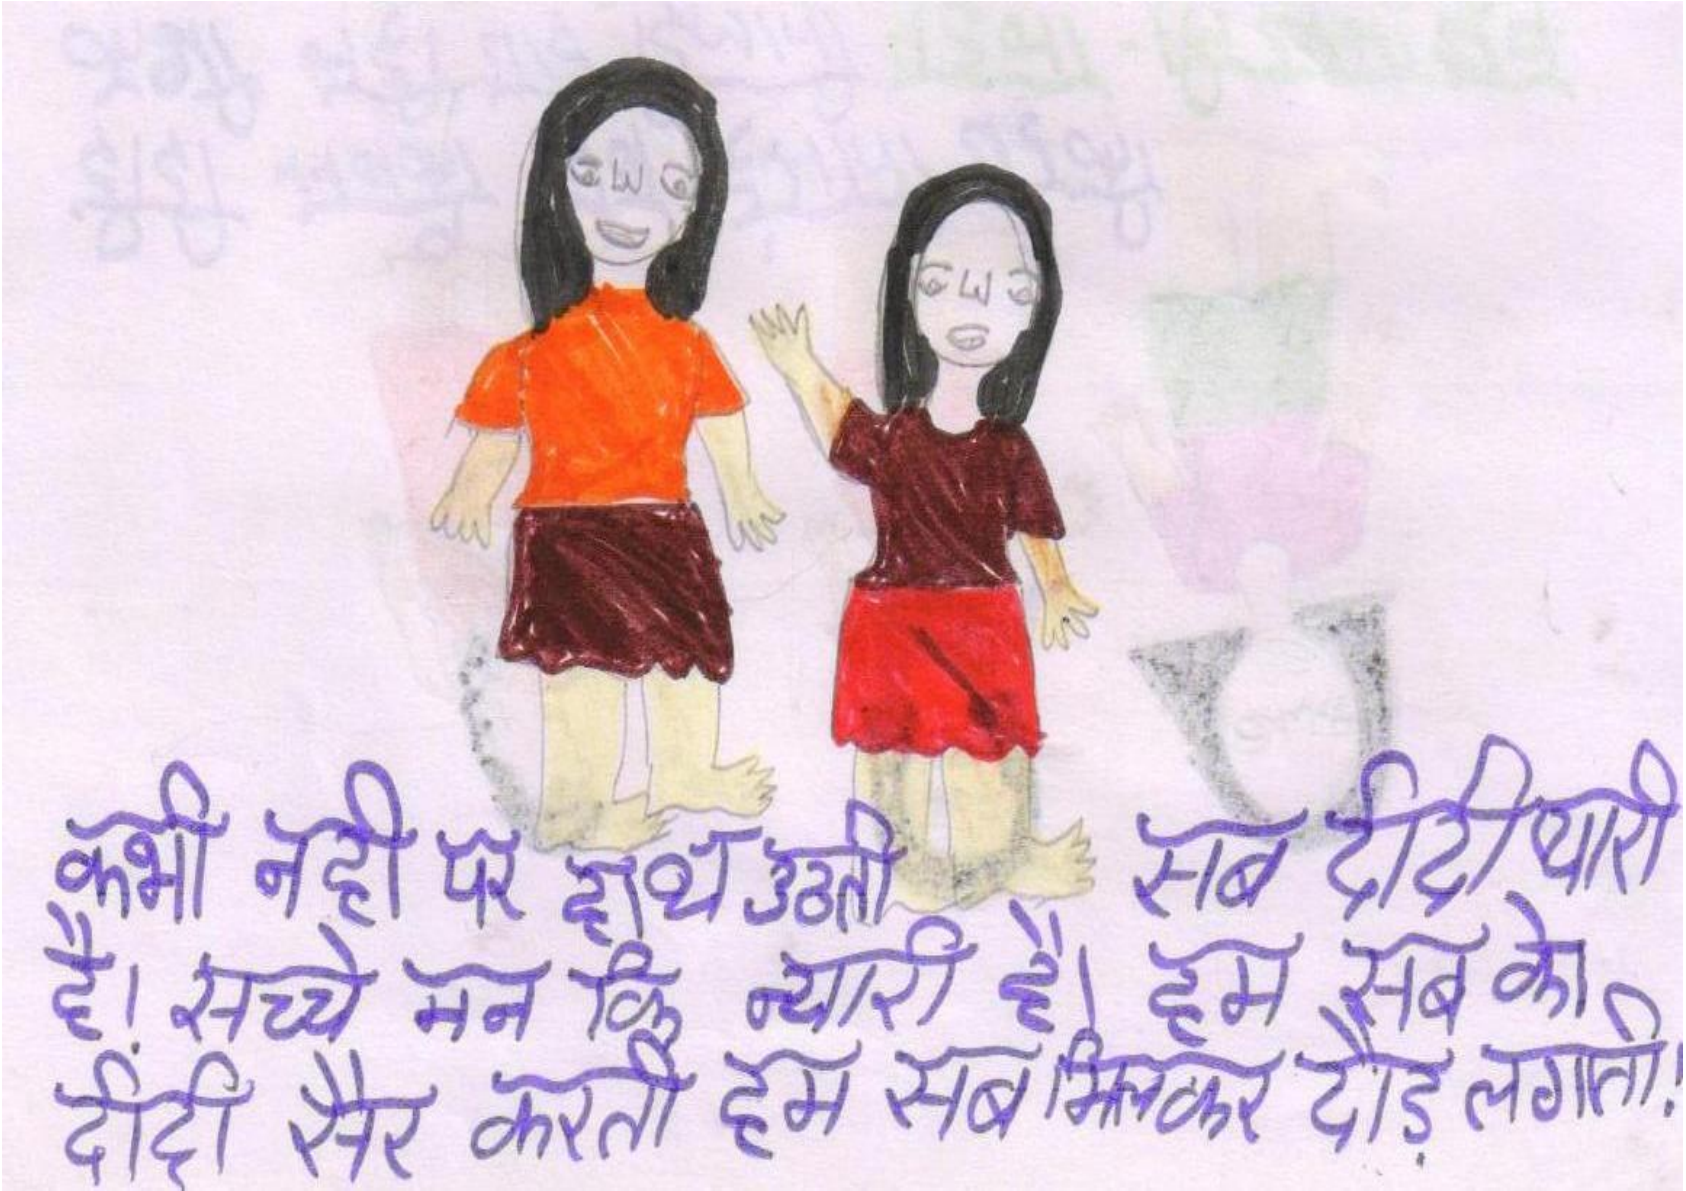 कभी नही पर हाथ उठाती सब दीदी प्यारी
है! सच्चे मन कि न्यारी है। हम सब को
दीदी सैर करती हम सब मिलकर दौड़ लगाती!